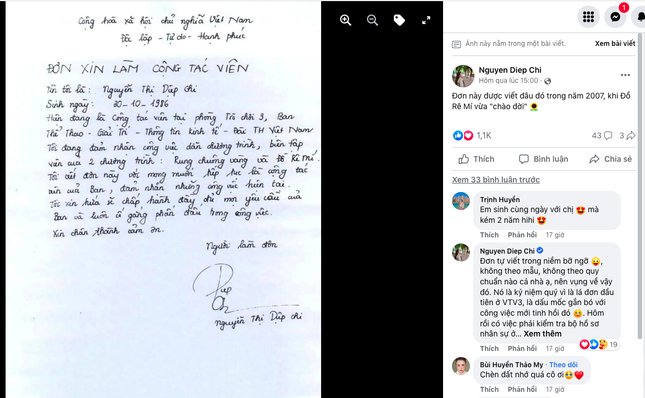 Cộng hoà xã hội chủ nghĩa Việt Nam
Độc lập - Tự do - Hạnh phúc
ĐƠN XIN LÀM CỘNG TÁC VIÊN
Tên tôi là: Nguyễn Thị Diệp Chi
Sinh ngày: 30-10-1986
Hiện đang là cộng tác viên tại phòng Trò chơi 3, Ban
Thể Thao - Giải Trí - Thông tin kinh tế - Đài TH Việt Nam
Tôi đang đảm nhận công việc dẫn chương trình, biên tập
viên của 2 chương trình: Rung chuông vàng và Đồ Rê Mí.
Tôi viết đơn này với mong muốn tiếp tục là cộng tác
viên của Ban, đảm nhận những công việc hiện tại.
Tôi xin hứa sẽ chấp hành đầy đủ mọi yêu cầu của
Ban và luôn cố gắng phấn đấu trong công việc.
Xin chân thành cảm ơn.
Người làm đơn
Nguyễn Thị Diệp Chi
1
Ảnh này nằm trong một bài viết. Xem bài viết
Nguyen Diep Chi
Hôm qua lúc 15:00
Đơn này được viết đâu đó trong năm 2007, khi Đồ
Rê Mí vừa "chào đời" 🌻
1,1K 43 3
Thích Bình luận Chia sẻ
Xem 33 bình luận trước
Trịnh Huyền
Em sinh cùng ngày với chị 😍 mà
kém 2 năm hihi 😍
Thích Phản hồi 17 giờ
Nguyen Diep Chi
Đơn tự viết trong niềm bỡ ngỡ 😛,
không theo mẫu, không theo quy
chuẩn nào cả nhà ạ, nên vụng về vậy
đó. Nó là kỷ niệm quý vì là lá đơn đầu
tiên ở VTV3, là dấu mốc gắn bó với
công việc mới tinh hồi đó 😊. Hôm
rồi có việc phải kiểm tra bộ hồ sơ
nhân sự ở... Xem thêm
19
Thích Phản hồi 17 giờ
Bùi Huyền Thảo My · Theo dõi
Chèn đất nhớ quá cô ơi🥹❤️
Thích Phản hồi 17 giờ